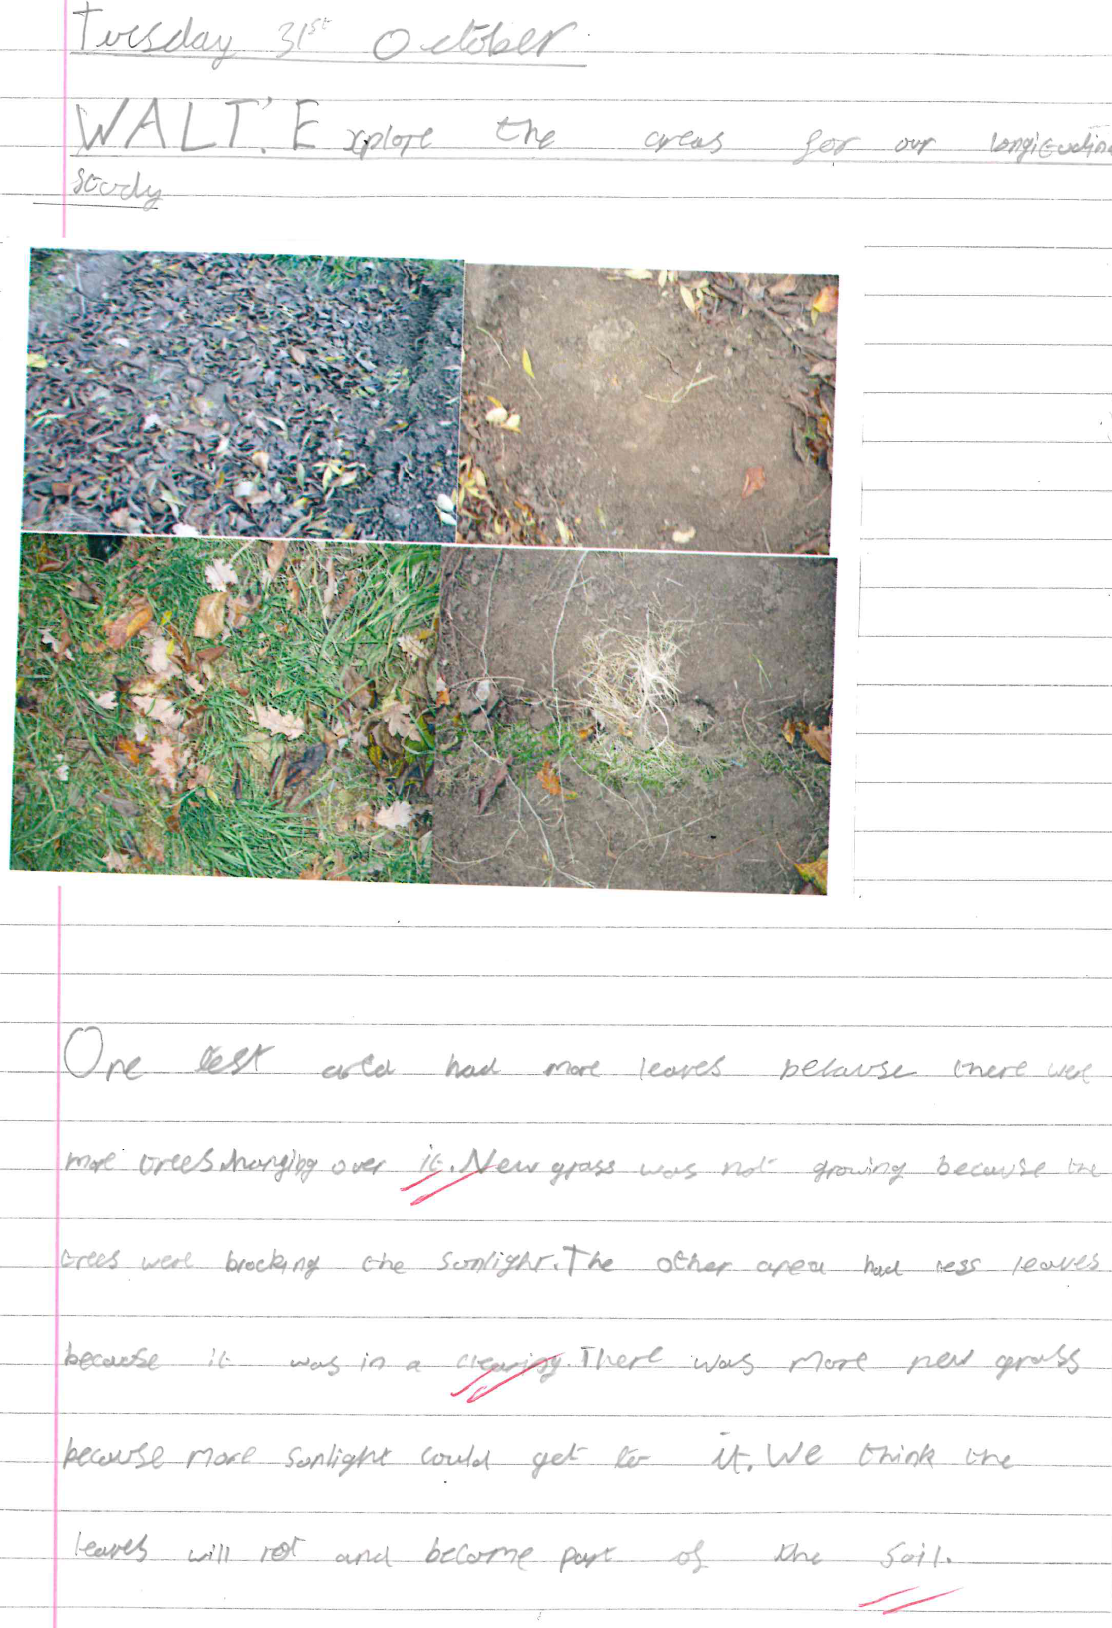 Tuesday 31st October
WALT: Explore the areas for our longitudin
study
One test area had more leaves because there were
more trees hanging over it. New grass was not growing because the
trees were blocking the sunlight. The other area had less leaves
because it was in a clearing. There was more new grass
because more sunlight could get to it. We think the
leaves will rot and become part of the soil.